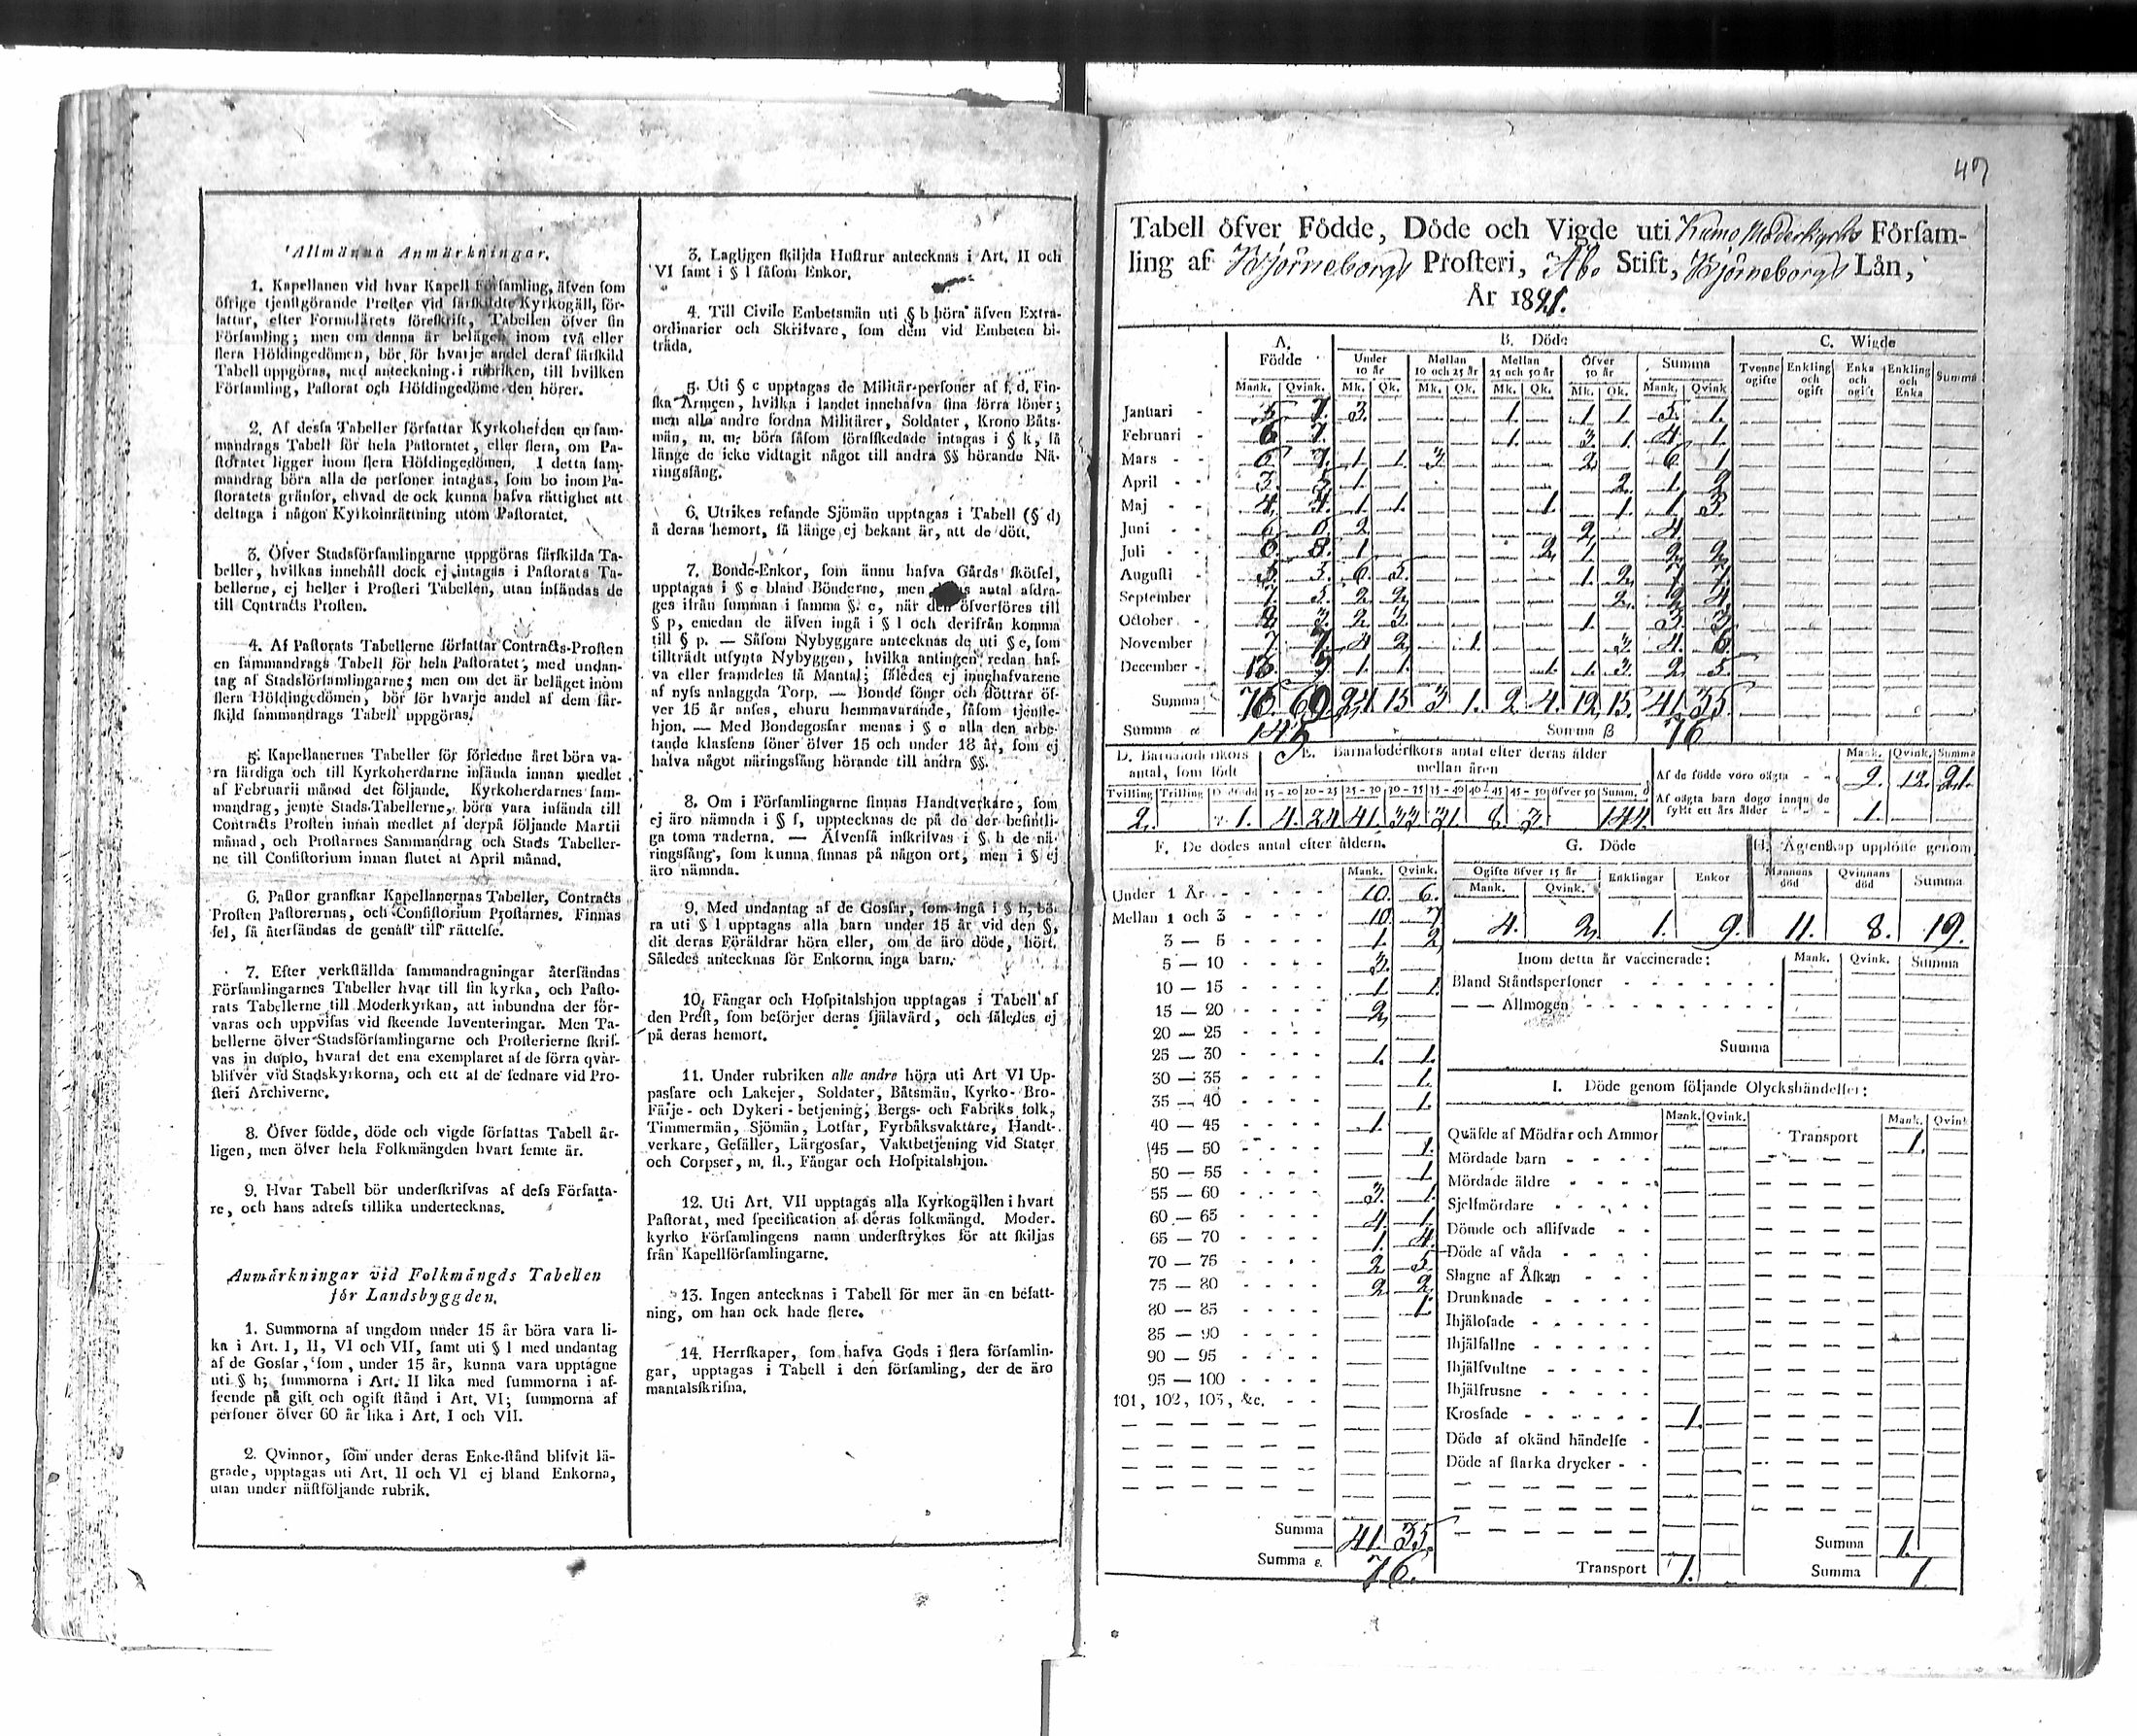 Allmänna Anmärkningar.
1. Kapellanen vid hvar Kapell Församling, äfven som
öfrige tjenstgörande Prester vid särskildte Kyrkogäll, för-
fattar, efter Formulärets föreskrift, Tabellen öfver sin
Församling; men om denna är belägen inom två eller
flera Höfdingedömen, bör för hvarje andel deraf särskild
Tabell uppgöras, med anteckning i rubriken, till hvilken
Församling, Pastorat och Höfdingedöme den hörer.
2. Af dessa Tabeller författar Kyrkoherden en sam-
mandrags Tabell för hela Pastoratet, eller flera, om Pa-
storatet ligger inom flera Höfdingedömen. I detta sam-
mandrag böra alla de personer intagas, som bo inom Pa-
storatets gränsor, ehvad de ock kunna hafva rättighet att
deltaga i någon Kyrkoinrättning utom Pastoratet.
3. Öfver Stadsförsamlingarne uppgöras särskilda Ta-
beller, hvilkas innehåll dock ej intagas i Pastorats Ta-
bellerne, ej heller i Prosteri Tabellen, utan insändas de
till Contracts Prosten.
4. Af Pastorats Tabellerne författar Contracts-Prosten
en sammandrags Tabell för hela Pastoratet, med undan-
tag af Stadsförsamlingarne; men om det är beläget inom
flera Höfdingedömen, bör för hvarje andel af dem sär-
skild sammandrags Tabell uppgöras.
5. Kapellanernes Tabeller för förledne året böra va-
ra färdiga och till Kyrkoherdarne insända innan medlet
af Februarii månad det följande. Kyrkoherdarnes sam-
mandrag, jemte Stads-Tabellerne, böra vara insända till
Contracts Prosten innan medlet af derpå följande Martii
månad, och Prostarnes Sammandrag och Stads Tabeller-
ne till Consistorium innan slutet af April månad.
6. Pastor granskar Kapellanernas Tabeller, Contracts
Prosten Pastorernas, och Consistorium Prostarnes. Finnas
fel, så återsändas de genast till rättelse.
7. Efter verkställda sammandragningar återsändas
Församlingarnes Tabeller hvar till sin kyrka, och Pasto-
rats Tabellerne till Moderkyrkan, att inbundna der för-
varas och uppvisas vid skeende Inventeringar. Men Ta-
bellerne öfver Stadsförsamlingarne och Prosterierne skrif-
vas in duplo, hvaraf det ena exemplaret af de förra qvar-
blifver vid Stadskyrkorna, och ett af de sednare vid Pro-
steri Archiverne.
8. Öfver födde, döde och vigde författas Tabell år-
ligen, men öfver hela Folkmängden hvart femte år.
9. Hvar Tabell bör underskrifvas af dess Författa-
re, och hans adress tillika undertecknas.
Anmärkningar vid Folkmängds Tabellen
för Landsbyggden.
1. Summorna af ungdom under 15 år böra vara li-
ka i Art. I, II, VI och VII, samt uti § l med undantag
af de Gossar, som, under 15 år, kunna vara upptagne
uti § h; summorna i Art. II lika med summorna i af-
seende på gift och ogift stånd i Art. VI; summorna af
personer öfver 60 år lika i Art. I och VII.
2. Qvinnor, som under deras Enke-stånd blifvit lä-
grade, upptagas uti Art. II och VI ej bland Enkorna,
utan under nästföljande rubrik.
3. Lagligen skiljda Hustrur antecknas i Art. II och
VI samt i § l såsom Enkor.
4. Till Civile Embetsmän uti § b höra äfven Extra-
ordinarier och Skrifvare, som dem vid Embeten bi-
träda.
5. Uti § c upptagas de Militär-personer af f. d. Fin-
ska Arméen, hvilka i landet innehafva sina förra löner;
men alla andre fordna Militärer, Soldater, Krono Båts-
män, m. m. böra såsom förafskedade intagas i § k, så
länge de icke vidtagit något till andra §§ hörande Nä-
ringsfång.
6. Utrikes resande Sjömän upptagas i Tabell (§ d)
å deras hemort, så länge ej bekant är, att de dött.
7. Bonde-Enkor, som ännu hafva Gårds skötsel,
upptagas i § e bland Bönderne, men antal afdra-
ges ifrån summan i samma §. e, när den öfverföres till
§ p, emedan de äfven ingå i § l och derifrån komma
till § p. — Såsom Nybyggare antecknas de uti § e, som
tillträdt utsynta Nybyggen, hvilka antingen redan haf-
va eller framdeles få Mantal; således ej innehafvarene
af nyss anlaggda Torp. — Bonde söner och döttrar öf-
ver 15 år anses, ehuru hemmavarande, såsom tjenste-
hjon. — Med Bondegossar menas i § e alla den arbe-
tande klassens söner öfver 15 och under 18 år, som ej
hafva något näringsfång hörande till andra §§.
8. Om i Församlingarne finnas Handtverkare, som
ej äro nämnda i § f, upptecknas de på de der befintli-
ga toma raderna. — Äfvenså inskrifvas i § h de nä-
ringsfång, som kunna finnas på någon ort, men i § ej
äro nämnda.
9. Med undantag af de Gossar, som ingå i § h, bö-
ra uti § l upptagas alla barn under 15 år vid den §,
dit deras Föräldrar höra eller, om de äro döde, hört.
Således antecknas för Enkorna inga barn.
10. Fångar och Hospitalshjon upptagas i Tabell af
den Prest, som besörjer deras själavård, och således ej
på deras hemort.
11. Under rubriken alle andre höra uti Art VI Up-
passare och Lakejer, Soldater, Båtsmän, Kyrko- Bro-
Färje- och Dykeri-betjening, Bergs- och Fabriks folk,
Timmermän, Sjömän, Lotsar, Fyrbåksvaktare, Handt-
verkare, Gesäller, Lärgossar, Vaktbetjening vid Stater
och Corpser, m. fl., Fångar och Hospitalshjon.
12. Uti Art. VII upptagas alla Kyrkogällen i hvart
Pastorat, med specification af deras folkmängd. Moder-
kyrko Församlingens namn understrykes för att skiljas
från Kapellförsamlingarne.
13. Ingen antecknas i Tabell för mer än en befatt-
ning, om han ock hade flere.
14. Herrskaper, som hafva Gods i flera församlin-
gar, upptagas i Tabell i den församling, der de äro
mantalsskrifna.
Tabell öfver Födde, Döde och Vigde uti Kumo Moderkyrko Försam-
ling af Björneborgs Prosteri, Åbo Stift, Björneborgs Län,
År 1821.
A. Födde B. Döde C. Wigde
Under 10 år Mellan 10 och 25 år Mellan 25 och 50 år Öfver 50 år Summa Tvenne ogifte Enkling och ogift Enka och ogift Enkling och Enka Summa
Mank. Qvink. Mk. Qk. Mk. Qk. Mk. Qk. Mk. Qk. Mank. Qvink
Januari 7. 3. 1. 1. 1. 5. 1.
Februari 6 7. 1. 3. 1. 4. 1.
Mars 6 7. 1. 1. 3. 2. 6. 1
April 3. 5 1. 2. 1. 2
Maj 4. 4. 1. 1. 1. 1. 1. 3.
Juni 6. 2. 2. 4.
Juli 8. 1. 2. 1. 2. 2.
Augusti 5. 6. 5. 1. 2. 7. 7.
September 7. 5. 2. 2. 2. 2. 4.
October 3. 2. 3. 1. 3. 3.
November 7. 7. 4. 2. 1. 3. 4. 6.
December 13. 1. 1. 1. 1. 3. 2. 5.
Summa 76. 69. 24. 15. 3 1. 2. 4. 12. 15. 41. 35.
Summa α 145. Summa β 76
D. Barnsföderskors antal, som födt E. Barnaföderskors antal efter deras ålder mellan åren
Mank. Qvink. Summa
Af de födde voro oägta 9. 12. 21.
Af oägta barn dogo innan de fyllt ett års ålder 1.
Tvilling Trilling 15–20 20–25 25–30 30–35 35–40 40–45 45–50 öfver 50 Summ. δ
2. 1. 4. 24. 41. 33. 31. 8. 3. 144.
F. De dödes antal efter åldern.
Mank. Qvink.
Under 1 År 10. 6.
Mellan 1 och 3 10. 7
3 — 5 1. 2
5 — 10 3.
10 — 15 1. 1.
15 — 20 2.
20 — 25
25 — 30 1. 1.
30 — 35 1.
35 — 40 1.
40 — 45 1.
45 — 50 1.
50 — 55 1.
55 — 60 3. 1.
60 — 65 4. 1.
65 — 70 1. 4.
70 — 75 2. 5.
75 — 80 2. 2.
80 — 85 1.
85 — 90
90 — 95
95 — 100
101, 102, 103, &c.
Summa 41. 35.
Summa ε. 76.
G. Döde
Ogifte öfver 15 år Enklingar Enkor
Mank. Qvink.
4. 2. 1. 9.
H. Ägtenskap upplöste genom
Mannens död Qvinnans död Summa
11. 8. 19.
Inom detta år vaccinerade: Mank. Qvink. Summa
Bland Ståndspersoner
— — Allmogen
Summa
I. Döde genom följande Olyckshändelser:
Mank. Qvink. Mank. Qvink
Qväfde af Mödrar och Ammor Transport 1.
Mördade barn
Mördade äldre
Sjelfmördare
Dömde och aflifvade
Döde af våda
Slagne af Åskan
Drunknade
Ihjälosade
Ihjälfallne
Ihjälsvultne
Ihjälfrusne
Krossade 1.
Döde af okänd händelse
Döde af starka drycker
Summa 1.
Transport 1. Summa 1